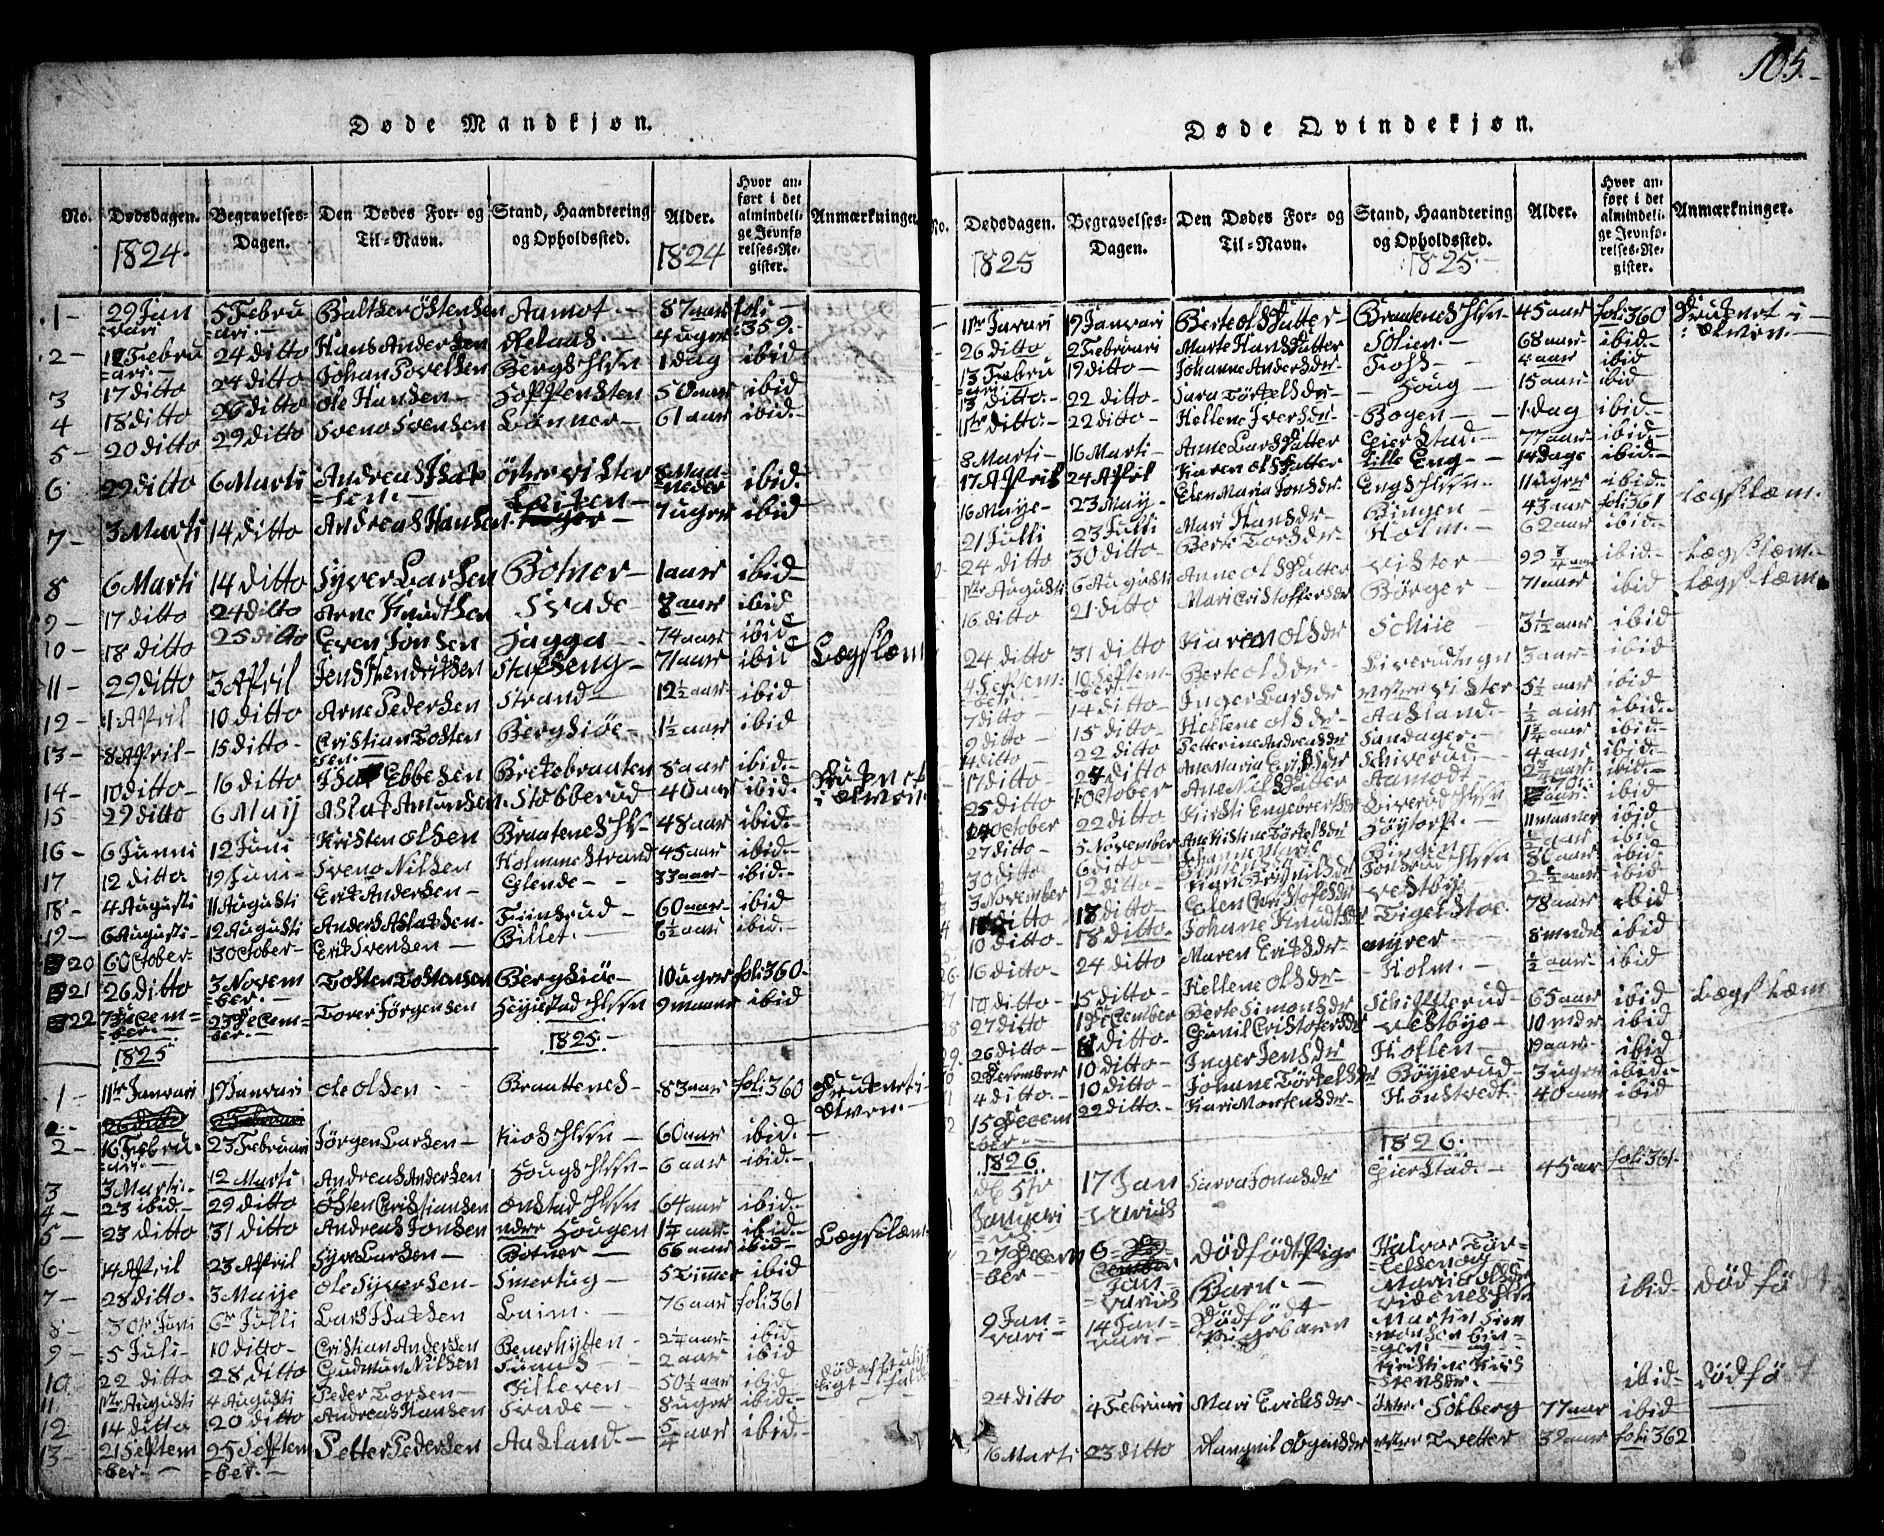 105.
Døde Mandkjøn.
No. Dødsdagen. 1824. Begravelses-Dagen. Den Dødes For- og Til-Navn. Stand, Haandtering og Opholdssted. Alder. 1824 Hvor anført i det almindelige Jevnførelses-Register. Anmærkninger.
1 - 29 Januari 5 Februari. - Balther Östensen Aamot. - 87 aar foli 359. -
2 - 12 Februari. - 24 ditto Hans Andersen 4 uger
24 ditto Johan Povelsen Bergshlsn 1 dag ibid
3 17 ditto 26 ditto Ole Hansen - Hoffensten 50 aar ibid
4 18 ditto 29 ditto Svend Svensen Lönner - 61 aar ibid. -
5 - 20 ditto
6 29 ditto 6 Marti Andreas Isaksen. - östervister 8 Maaneder ibid.
7 - 3 Marti 14 ditto Andreas Hansen Leiken 7 uger ibid
8 6 Marti 14 ditto Syver Larsen Botner - 1 aar ibid
9 - 17 ditto 24 ditto Arne Knudsen Svade - 8 aar ibid
10 - 18 ditto 25 ditto Even Jonsen Hagga - 74 aar ibid
11 - 29 ditto 3 April Jens Hendriksen Stafseng - 71 aar ibid Lægslæm
12 - 1 April 10 ditto Arne Pedersen Strand - 12½ aar ibid
13 - 8 April - 15 ditto - Cristian Tostensen. - Bergsiöe - 1½ aar ibid
14 - 10 ditto - 16 ditto Isak Ebbesen Brekebraaten 8 aar ibid. -
15 - 29 ditto 6 Maij Aslak Amundsen. Stobberud - 40 aar ibid. - Druknet i Elven.
16 - 6 Junni 12 Juni Kristen Olsen Braatenes 48 aar ibid. -
17 12 ditto 19 Juni - Svend Nilsen Holmmestrand 45 aar ibid. -
18 - 4 Augusti 11 Augusti Erik Andersen - Eglende - 33 aar ibid. -
19 - 6 Augusti 12 Augusti Anders Aslaksen. Finsrud - 60 aar ibid
20 6 October 13 October - Erik Svensen - Billet. - 6½ aar ibid. -
21 26 ditto 3 November. - Tosten Tostensen Bergsiöe - 10 uger foli 360 -
22 7 December. - 23 December. - Torer Jörgensen Hejestad hlsn 9 maaner ibid
1825 1825. -
1 - 11te Januari 19 Januari Ole Olsen - Braattenes - 83 aar foli 360 Druknet i Elven. -
2 - 16 Februari. - 23 Februari Jörgen Larsen - Kios hlsn - 60 aar ibid. -
3 3 Marti. 12 Marti Andreas Andersen Hougs hlsn - 6 aar ibid. -
4 - 23 ibid. - 29 ditto Östen Cristiansen Onstad hlsn 64 aar ibid. -
5 - 23 ditto 31 ditto Andreas Jonsen nder Hougen 1¼ aar ibid. -
6 - 14 April 23 April Syver Larsen - Botner - 66 aar ibid - Lægslæm
7 - 28 ditto. 3 Maije Ole Syversen - Smertug - 5 Timmer ibid
8 - 30te Juni 6te Julli Lars Isaksen Laim. - 76 aar foli 361
9 - 5 Juli - 10 ditto - Cristian Andersen Benerhytten - 2¼ aar ibid
10 22 ditto 28 ditto Gudmun Nilsen 2 aar ibid
11. 1te Augusti 4 Augusti Peder Torsen - Tilleren - 50½ aar ibid
12 14 ditto 20 ditto Andreas Hansen Svade - 8 uger ibid. -
13 - 21 September. - 25 September. - Petter Pedersen Aasland. - 5/4 aar ibid. -
Døde Qvindekjøn.
No. Dødsdagen. 1825 Begravelses-Dagen. Den Dødes For- og Til-Navn. Stand, Haandtering og Opholdssted. 1825. - Alder. Hvor anført i det almindelige Jevnførelses-Register. Anmærkninger.
11te Januari 19 Januari Berte Olsdatter - Braatenes hlsn - 45 aar foli 360 Druknet i Elven. -
26 ditto 2 Februari Marte Hansdatter Solien. - 68 aar ibid. -
13 Februari 19 ditto - Johanne Andersdr - Foss - 4 aar ibid
13 ditto. - 22 ditto - Sara Törkelsdr - Houg - 15 aar ibid
1te ditto. - 22 ditto - Hellene Iversdr - Bogen - 1 dag ibid. -
8 Marti - 16 Marti - Anne Larsdatter Eierstad. - 77 aar ibid. -
17 April 24 April Karen Olsdatter Lille Eng - 14 dage ibid. -
16 Maye - 23 May - Elen Maria Jonsdr Engshlsn. - 11 uger ibid. -
21 Julli 23 Julli Mari Hansdr - Bingen - 43 aar foli 361 Lægslæm.
24 ditto 30 ditto - Berte Torsdr - Holm. - 62 aar ibid. -
1te Augusti 6 Augusti Anne Olsdatter Vister 99¾ aar ibid. - Lægslæm. -
16 ditto 21 ditto - Mari Cristoffersdr Börger - 71 aar ibid Lægslæm
24 ditto 31 ditto Karen Olsdr Schiie 3½ aar ibid
4 September 10 September. - Berte Olsdr - Liverudsegn 3 aar. - ibid
7 ditto 14 ditto - Inger Larsdr Vister 5½ aar ibid
9 ditto - 15 ditto - Hellene Olsdr - Aasland. - ½ aar ibid
4 ditto - 22 ditto Petterine Andreasdr Sandager. - 1¾ aar ibid. -
17 ditto 24 ditto Ane Maria Eriksdr Schiverud - 4 aar ibid. -
25 ditto 1 October Ane Nilsdatter Aamodt - ibid. -
October 22 ditto Kirsti Engebretsdr Liverud hlsn ibid
27 ditto - 5 November Ane Kistine Törkelsdr Höytorp. - 11 maaner ibid
30 ditto 6 ditto - ½ aar ibid
3 November 12 ditto - 80 aar ibid
ditto 13 ditto - Elen Cristofersdr Vestby 2½ aar ibid
10 ditto - 18 ditto - Johane Knudsdr Tigelstoe. 78 aar ibid
16 ditto - 24 ditto Maren Eriksdr - Myrer - 8 mndr ibid
10 ditto - 15 ditto - Hellene Olsdr - Holm. - ½ aar. ibid
27 ditto 1 December Berte Simonsdr Schipperud - 65 aar ibid Lægslæm
26 ditto - ditto - Gunil Cristofersdr Vestbye - 10 mdr ibid
2 December 10 ditto - Inger Jensdr Hollen - 19 aar - ibid
4 ditto - 10 ditto - Johane Törkelsdr Böyierud - 3 uger ibid. -
15 December. - 22 ditto. - Kari Mortensdr - Hönstvedt. 40 aar ibid
1826 1826.
5te Januari 17 Januarius Sarra Jonasdr Eierstad. - 45 aar foli 361 -
27 December - 6 Januarius Dödfödt Pige Barn. - Halvor Törkelsen og Marie Olsdr Videnes hlsn ibid - dødfødt
9 Januari - 14 Januari - Dödfödt Pigebarn Martin Simonsen Bingen og Kristine dr. - ibid - dødfødt
24 ditto 4 Februari Mari Eriksdr - öster Solberg 77 aar ibid
16 Marti 23 ditto Mangnil Aagesdr vester Tvetter 39 aar foli 362